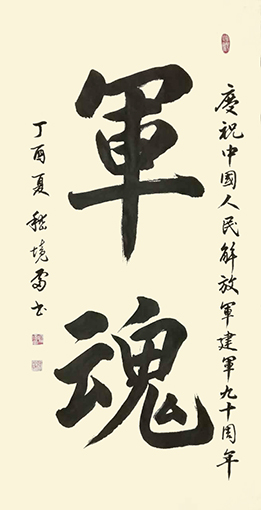 慶祝中國人民解放軍建軍九十周年
軍魂
丁酉夏 境 书